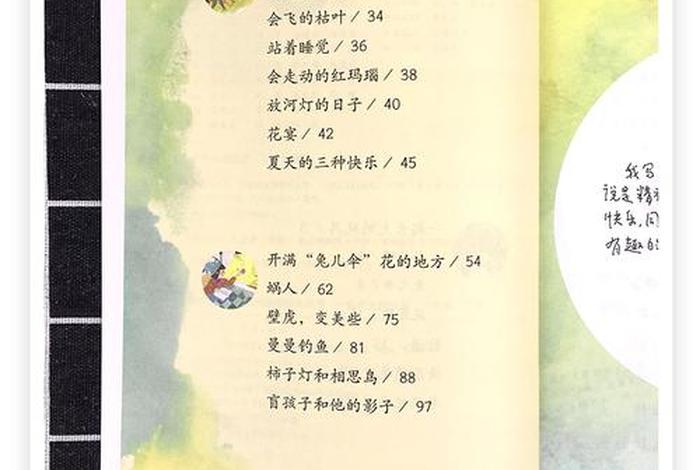 会飞的枯叶 / 34
站着睡觉 / 36
会走动的红玛瑙 / 38
放河灯的日子 / 40
花宴 / 42
夏天的三种快乐 / 45
开满“兔儿伞”花的地方 / 54
蜗人 / 62
壁虎，变美些 / 75
曼曼钓鱼 / 81
柿子灯和相思鸟 / 88
盲孩子和他的影子 / 97
我写
说是精
快乐,同
有趣的